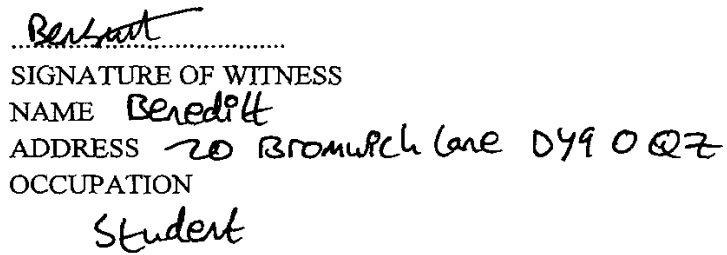 SIGNATURE OF WITNESS
NAME
ADDRESS 20 Bromwich Lane DY9 0QZ
OCCUPATION
Student